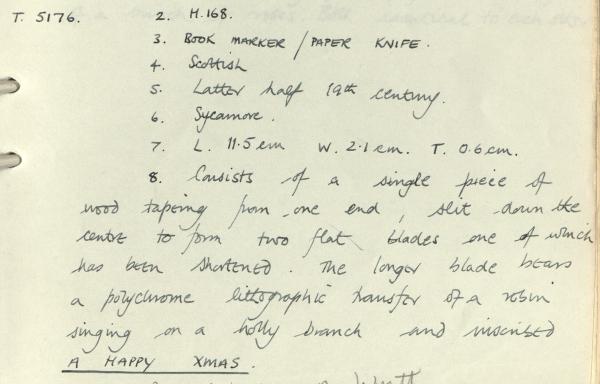 T. 5176. 2. H.168.
3. BOOK MARKER / PAPER KNIFE.
4. Scottish
5. Latter half 19th century.
6. Sycamore.
7. L. 11.5cm W. 2.1cm. T. 0.6cm.
8. Consists of a single piece of
wood tapering from one end, slit down the
centre to form two flat blades one of which
has been shortened. The longer blade bears
a polychrome lithographic transfer of a robin
singing on a holly branch and inscribed
A HAPPY XMAS.